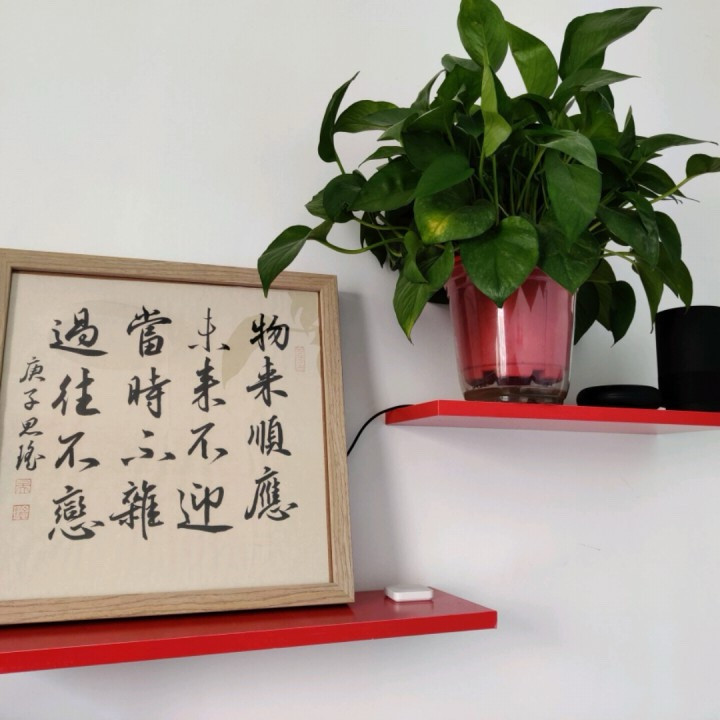 物来順應
未来不迎
當時不雜
過往不戀
庚子思瑤